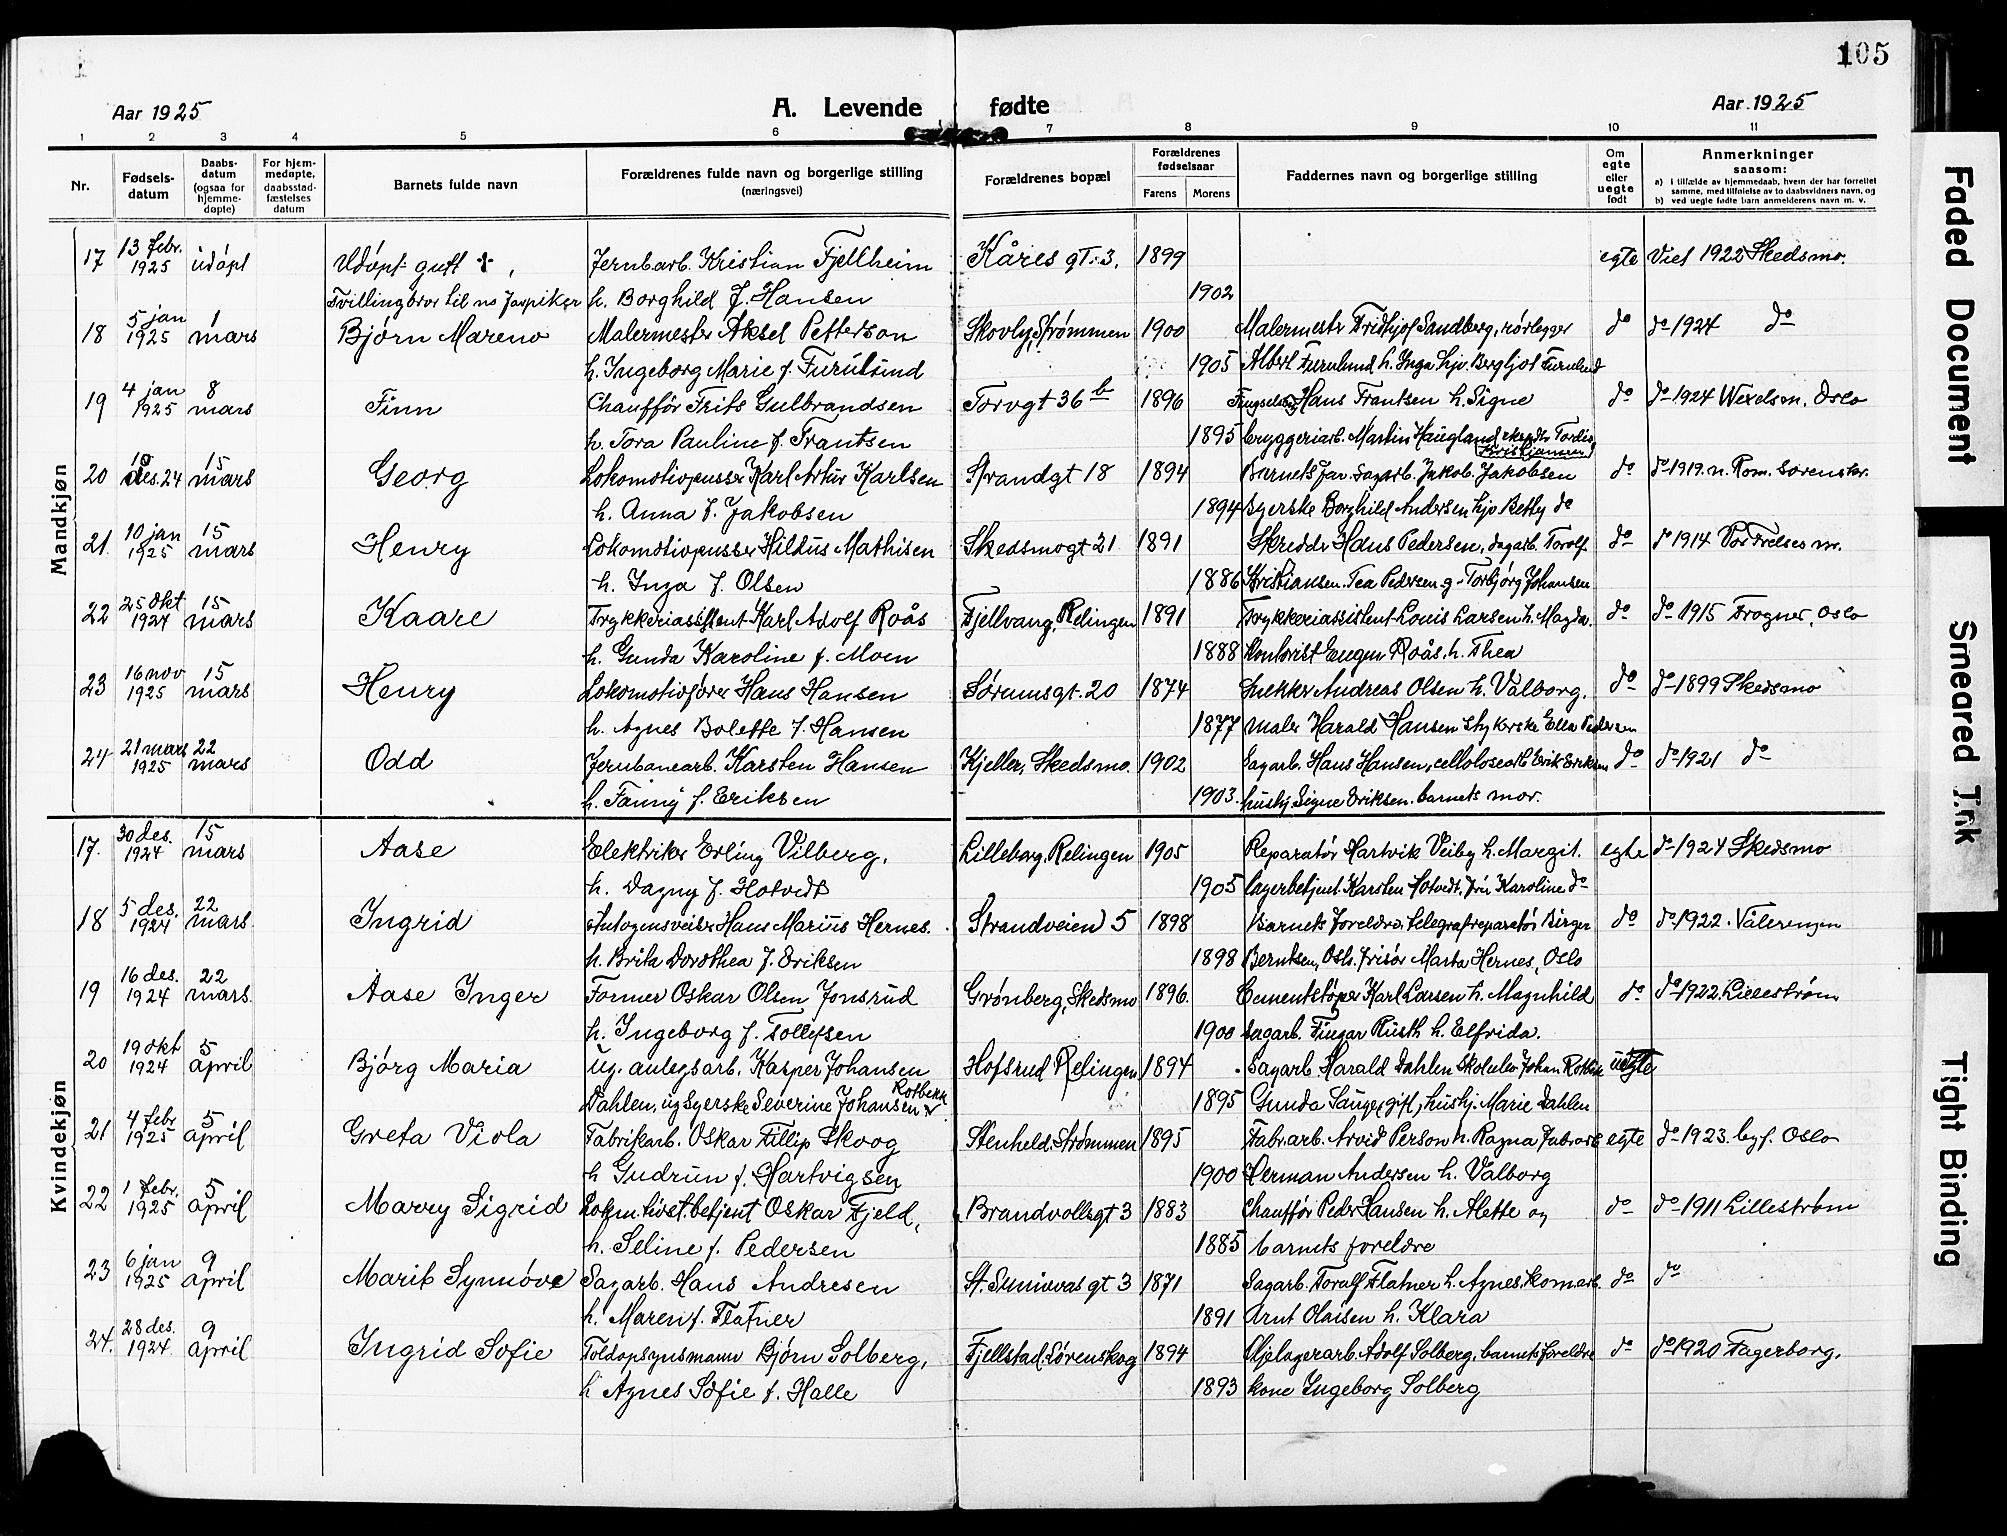 105
Aar 1925
A. Levende fødte
Aar 1925
1 2 3 4 5 6 7 8 9 10 11
Nr.
Fødsels-
datum
Daabs-
datum
(ogsaa for
hjemme-
døpte)
For hjem-
medøpte,
daabsstad-
fæstelses
datum
Barnets fulde navn
Forældrenes fulde navn og borgerlige stilling
(næringsvei)
Forældrenes bopæl
Forældrenes
fødselsaar
Farens Morens
Faddernes navn og borgerlige stilling
Om
egte
eller
uegte
født
Anmerkninger
saasom:
a) i tilfælde av hjemmedaab, hvem der har forrettet
samme, med tilføielse av to daabsvidners navn, og
b) ved uegte fødte barn anmelderens navn m. v.
Mandkjøn
17 13 febr. 1925 udøpt Udøpt gutt † Jernbarb. Kristian Fjellheim Kåres gt. 3. 1899 egte Viet 1922 Skedsmo.
Tvillingbror til no h. Borghild f. Hansen 1902
18 5 jan 1925 1 mars Bjørn Mareno Malermester Aksel Petterson Skovly, Strømmen 1900 Malermestr Fridtjof Sandberg, rørlegger do do 1924 do
h. Ingeborg Marie f. Furulund 1905 Albert Furulund h. Inga hjv. Bergljot Furulund
19 4 jan 1925 8 mars Finn Chauffør Frits Gulbrandsen Torvgt 36 b 1896 Hans Frantsen h. Signe do do 1924 Wexelsm. Oslo
h. Tora Pauline f. Frantsen 1895 bryggeriarb. Martin Haugland Tordis Kristiansen
20 10 des. 24 15 mars Georg Lokomotivpusser Karl Artur Karlsen Strandgt 18 1894 Barnets far. Sagarb. Jakob Jakobsen do do 1919. n. Rom. Sørenskr.
h. Anna f. Jakobsen 1894 syerske Borghild Andersen hjv Betty do
21. 10 jan 1925 15 mars Henry Lokomotivpusser Hildus Mathisen Skedsmogt 21 1891 Skredder Hans Pedersen, dagarb. Torolf do do 1914 Vor Frelses m.
h. Inga f. Olsen 1886 Kristiansen. Tea Pedersen g. Torbjørg Johansen
22 25 okt 1924 15 mars Kaare Trykkeriassistent Karl Adolf Roås Fjellvang, Relingen 1891 Trykkeriassistent Louis Larsen h. Magda. do do 1915 Frogner, Oslo
h. Gunda Karoline f. Moen 1888 Kontorist Eugen Roås. h. Thea
23 16 nov 1925 15 mars Henry Lokomotivfører Hans Hansen Sørumsgt. 20 1874 Snekker Andreas Olsen h. Valborg. do do 1899 Skedsmo
h. Agnes Bolette f. Hansen 1877 maler Harald Hansen strykerske Ella Pedersen
24 21 mars 1925 22 mars Odd Jernbanearb. Karsten Hansen Kjeller, Skedsmo. 1902 Sagarb. Hans Hansen, cellulosearb Erik Eriksen do do 1921 do
h. Fanny f. Eriksen 1903. hushj. Signe Eriksen. barnets mor.
Kvindekjøn
17. 30 des. 1924 15 mars Aase Elektriker Erling Vilberg. Lilleborg, Relingen 1905 Reparatør Hartvik Veiby h. Margit. egte do 1924 Skedsmo
h. Dagny f. Hotvedt 1905 lagerbetjent Karsten Hotvedt, fru Karoline do
18 5 des. 1924 22 mars Ingrid Autogensveiser Hans Marius Hernes. Strandveien 5 1898 Barnets foreldre, telegrafreparatør Birger do do 1922. Vålerengen
h. Brita Dorothea f. Eriksen 1898 Berntsen, Oslo. frisør Marta Hernes, Oslo
19 16 des. 1924 22 mars. Aase Inger Former Oskar Olsen Jonsrud Grønberg, Skedsmo 1896 Cementstøper Karl Larsen h. Magnhild do do 1922. Lillestrøm
h. Ingeborg f. Tollefsen 1900 sagarb. Fingar Rusth h. Elfrida.
20 19 okt 1924 5 april Bjørg Maria ug. anlegsarb. Kasper Johansen Hofsrud Relingen 1894 Sagarb. Harald Dahlen Skoleelev Johan uegte
Dahlen, ug syerske Severine Johansen Rotbekk 1895 Gunda Sauge, gift, hushj. Marie Dahlen
21 4 febr 1925 5 april Greta Viola Fabrikarb. Oskar Fillip Skoog Stenheld. Strømmen 1895 Fabr.arb. Arvid Person h. Ragna fabrarb egte do 1923. byf. Oslo
h Gudrun f. Hartvigsen 1900 Herman Andersen h. Valborg
22 1 febr. 1925 5 april Marry Sigrid Lokm.tivst.betjent Oskar Fjeld, Brandvollsgt 3 1883 Chauffør Peder Hansen h. Alette og do do 1911 Lillestrøm
h. Seline f. Pedersen 1885 barnets foreldre
23 6 jan 1925 9 april Marit Synnøve Sagarb. Hans Andresen St. Sunivas gt 3 1871 Sagarb. Toralf Flatner h. Agnes. komarb. do do
h. Maren f. Flatner 1891 Arnt Olaisen h. Klara
24. 28 des. 1924 9 april Ingrid Sofie Toldopsynsmann Bjørn Solberg, Fjellstad, Lørenskog 1894 Oljelagerarb. Adolf Solberg, barnets foreldre do do 1920 Fagerborg.
h Agnes Sofie f. Halle 1893 kone Ingeborg Solberg
Faded Document
Smeared Ink
Tight Binding